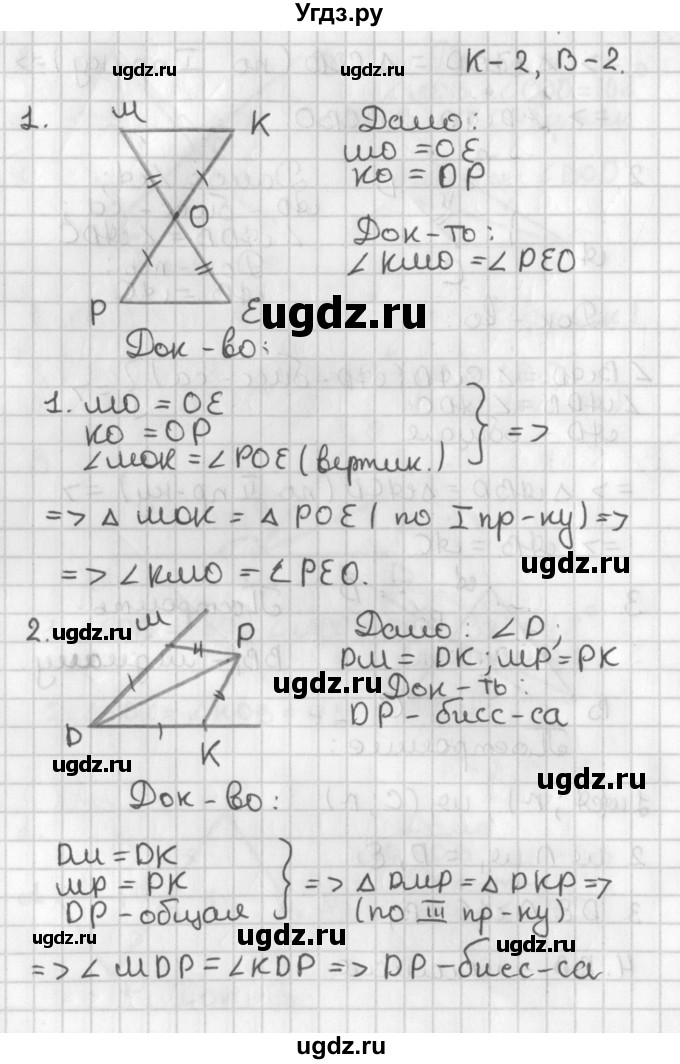 Угдз.ру
K-2, В-2.
ugdz.ru
ugdz.ru
1.
М
К
О
Р
Е
Дано:
МО = ОЕ
КО = ОР
Док-ть:
∠КМО = ∠РЕО
ugdz.ru
Док-во:
1. МО = ОЕ
КО = ОР
∠МОК = ∠РОЕ (вертик.)
=>
=> △ МОК = △ РОЕ ( по I пр-ку) =>
=> ∠КМО = ∠РЕО.
ugdz.ru
2.
М
Р
D
К
ugdz.ru
Дано: ∠D;
DM = DK; МР = РК
Док-ть:
DP - бисс-са
ugdz.ru
ugdz.ru
ugdz.ru
Док-во:
DM = DK
МР = РК
DP - общая
=> △ DMP = △ DKP =>
(по III пр-ку)
ugdz.ru
ugdz.ru
=> ∠ MDP = ∠KDP => DP - бисс-са
ugdz.ru
ugdz.ru